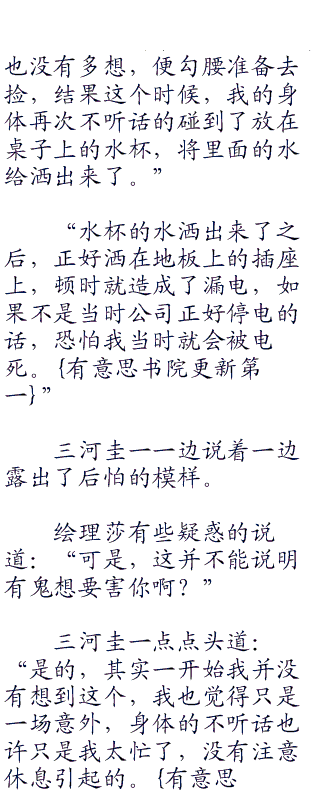 也没有多想，便勾腰准备去
捡，结果这个时候，我的身
体再次不听话的碰到了放在
桌子上的水杯，将里面的水
给洒出来了。”
“水杯的水洒出来了之
后，正好洒在地板上的插座
上，顿时就造成了漏电，如
果不是当时公司正好停电的
话，恐怕我当时就会被电
死。{有意思书院更新第
一}”
三河圭一一边说着一边
露出了后怕的模样。
绘理莎有些疑惑的说
道：“可是，这并不能说明
有鬼想要害你啊？”
三河圭一点点头道：
“是的，其实一开始我并没
有想到这个，我也觉得只是
一场意外，身体的不听话也
许只是我太忙了，没有注意
休息引起的。{有意思